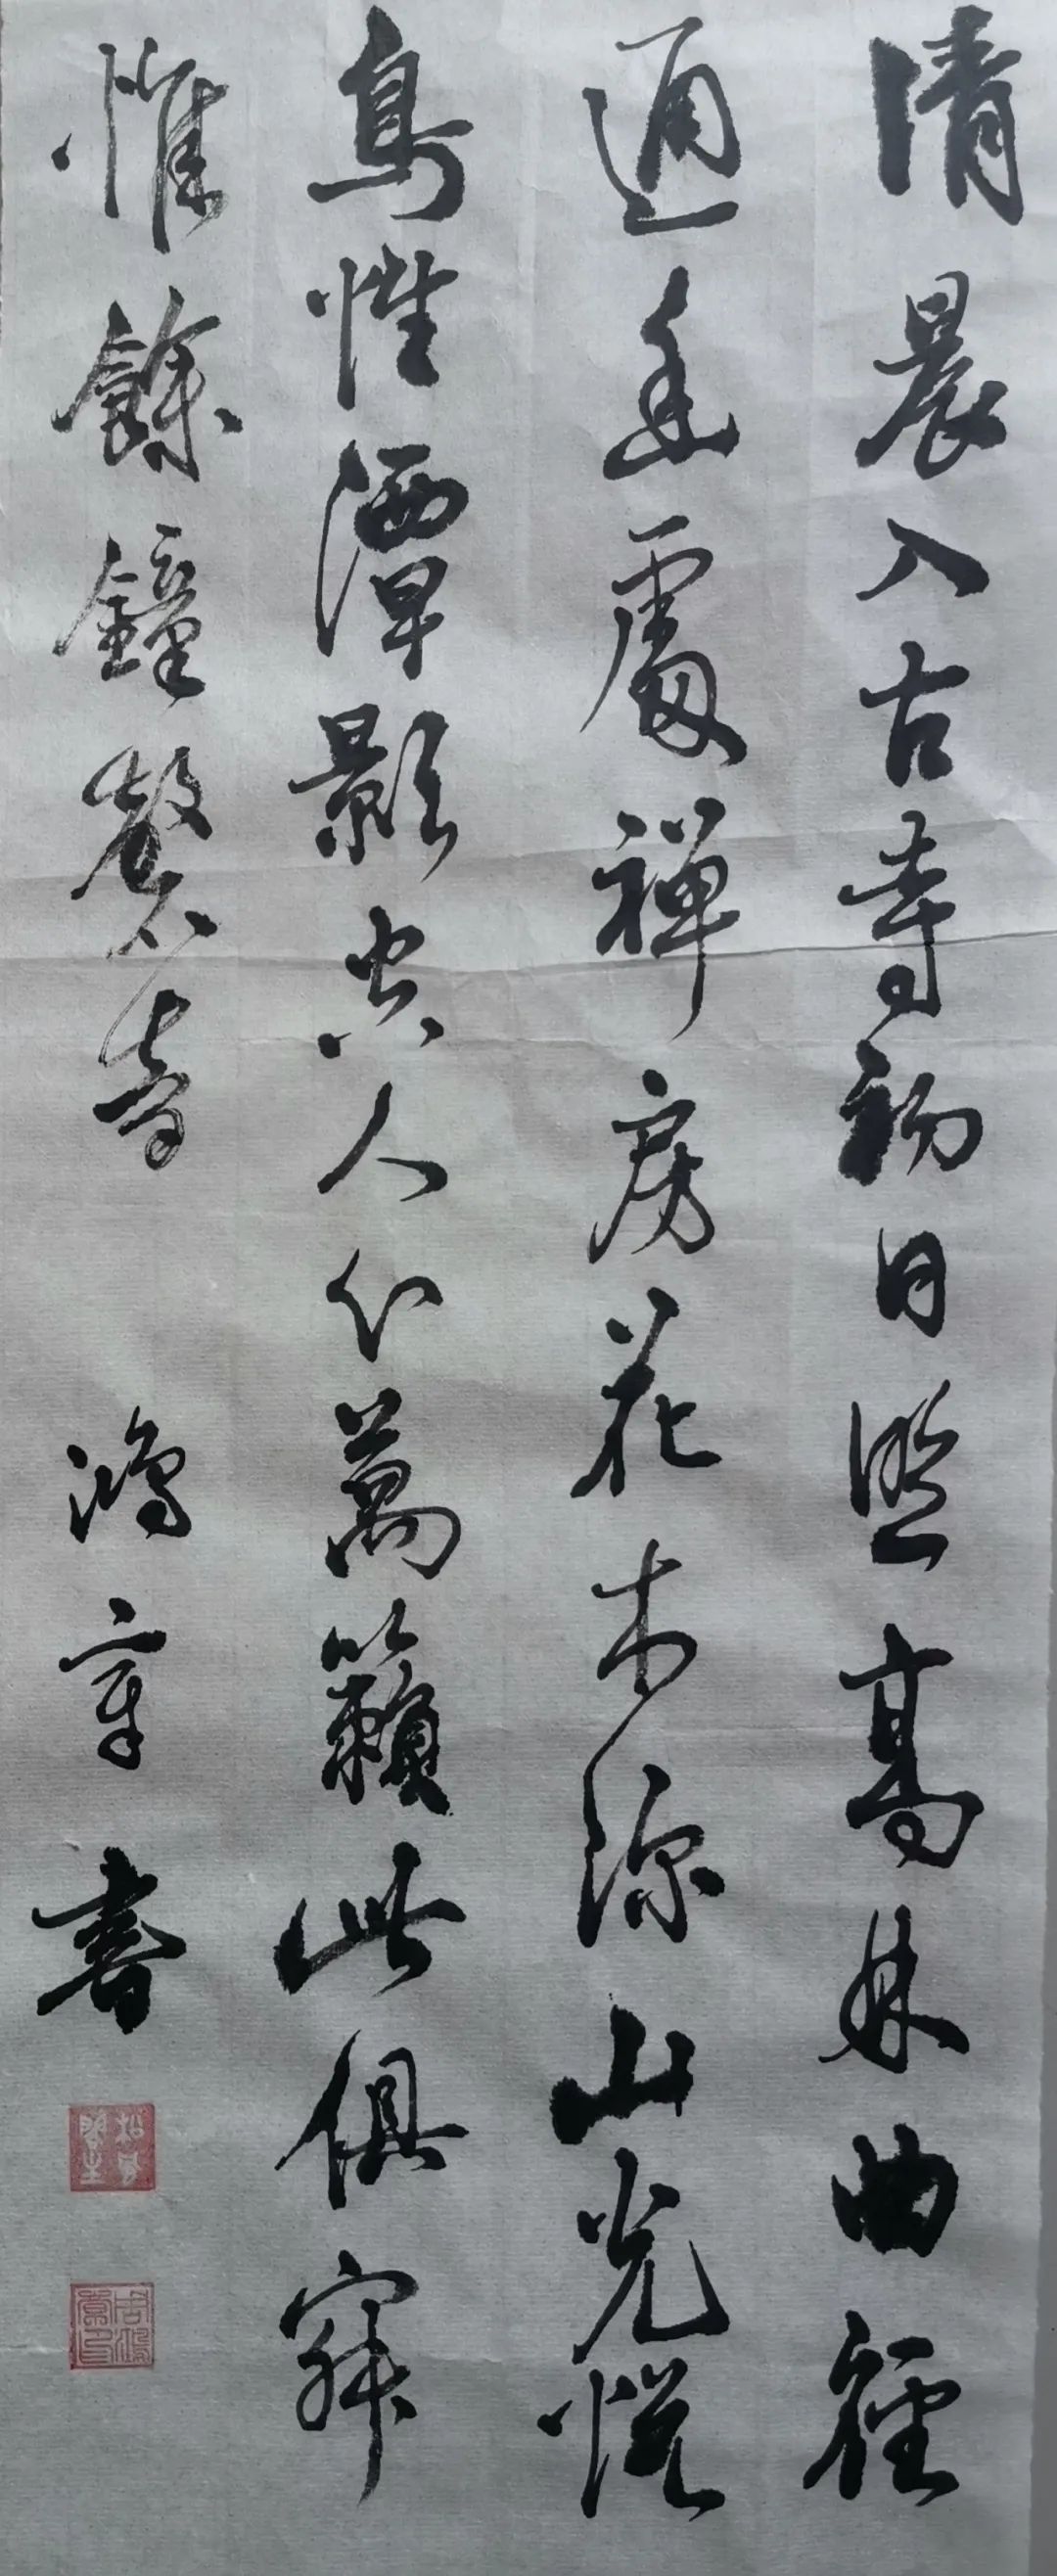 清晨入古寺初日照高林曲徑
通幽處禪房花木深山光悅
鳥性潭影空人心萬籟此俱寂
惟餘鐘磬音
鴻章書